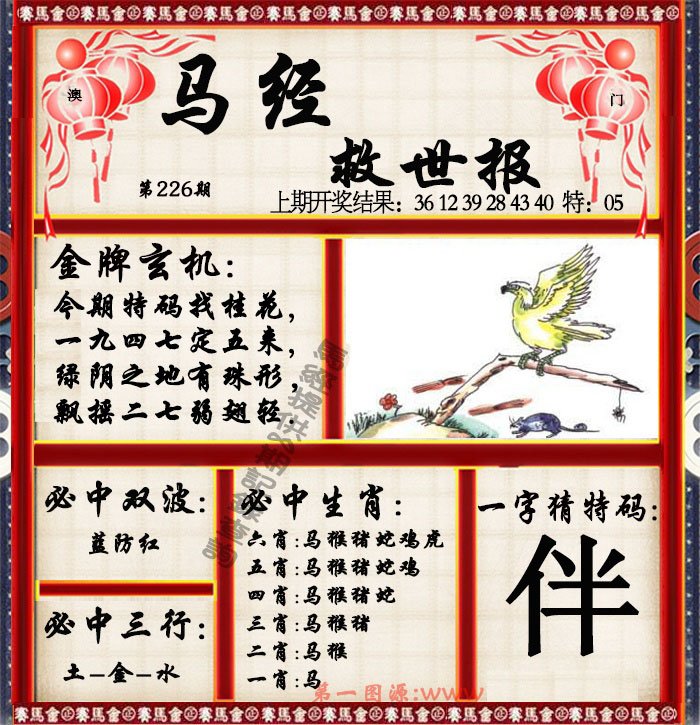 赛馬會 赛馬會 赛馬會 赛馬會 赛馬會 赛馬會 赛馬會 赛馬會 赛馬會
澳
门
马经
救世报
第226期
上期开奖结果：36 12 39 28 43 40 特：05
金牌玄机：
今期特码找桂花，
一九四七定五来，
绿阴之地有珠形，
飘摇二七弱翅轻.
必中双波：
蓝防红
必中三行：
土–金–水
必中生肖：
六肖:马猴猪蛇鸡虎
五肖:马猴猪蛇鸡
四肖:马猴猪蛇
三肖:马猴猪
二肖:马猴
一肖:马
一字猜特码：
伴
第一图源:www